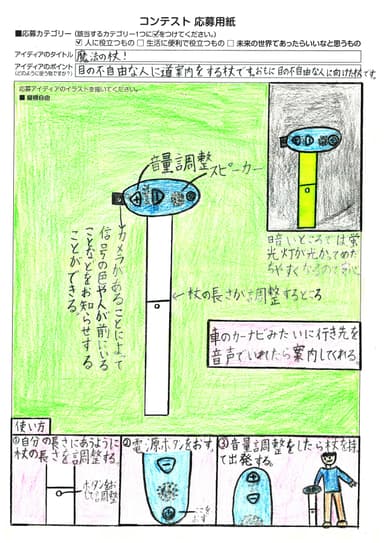 コンテスト 応募用紙
■応募カテゴリー（該当するカテゴリー1つに☑をつけてください。）
☑ 人に役立つもの □ 生活に便利で役立つもの □ 未来の世界であったらいいなと思うもの
アイディアのタイトル
魔法の杖!
アイディアのポイント
（どのように使う物ですか？）
目の不自由な人に道案内をする杖です。おもに目の不自由な人に向けた杖です。
応募アイディアのイラストを描いてください。
■縦横自由
音量調整
スピーカー
カメラがあることによって
信号の色や人が前にいる
ことなどをお知らせする
ことができる。
暗いところでは蛍
光灯が光かってめだ
ちやすくなるので安心
杖の長さが調整するところ
車のカーナビみたいに行き先を
音声でいれたら案内してくれる。
使い方
①自分の長さにあうように
杖の長さを調整する。
ボタンをお
して調整
②電源ボタンをおす。
ここを
おす
③音量調整をしたら杖を持っ
て出発する。